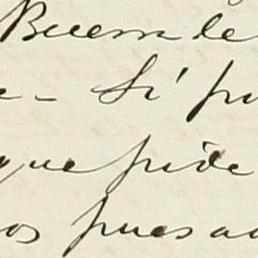 Buem le
e - Si pu
que pide
os pues a